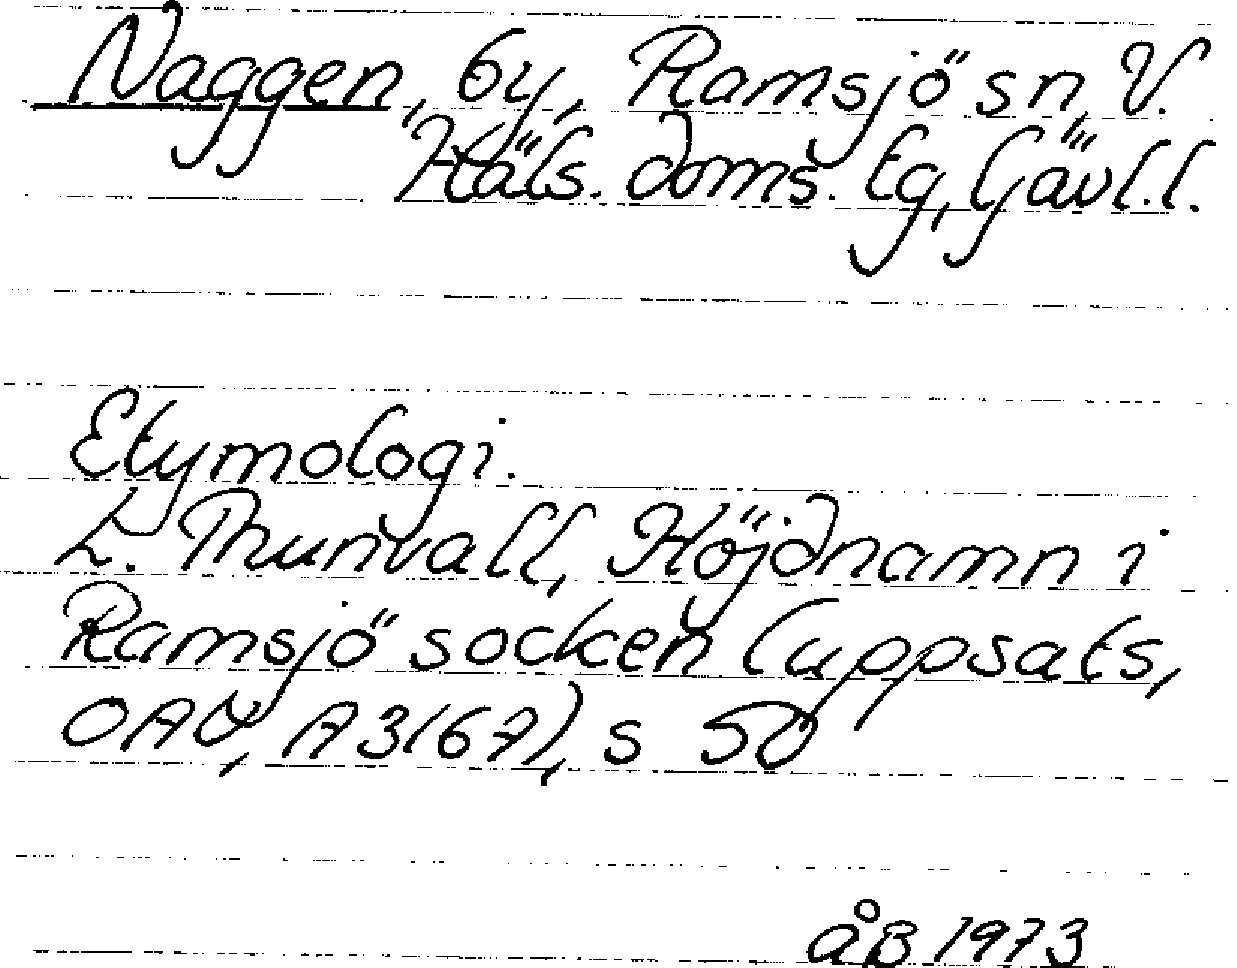 Naggen, by, Ramsjö sn, V.
Häls. doms. tg, Gävl.l.
Etymologi.
L. Thunvall, Höjdnamn i
Ramsjö socken (uppsats,
OAU, A3167), s 50
åB 1973